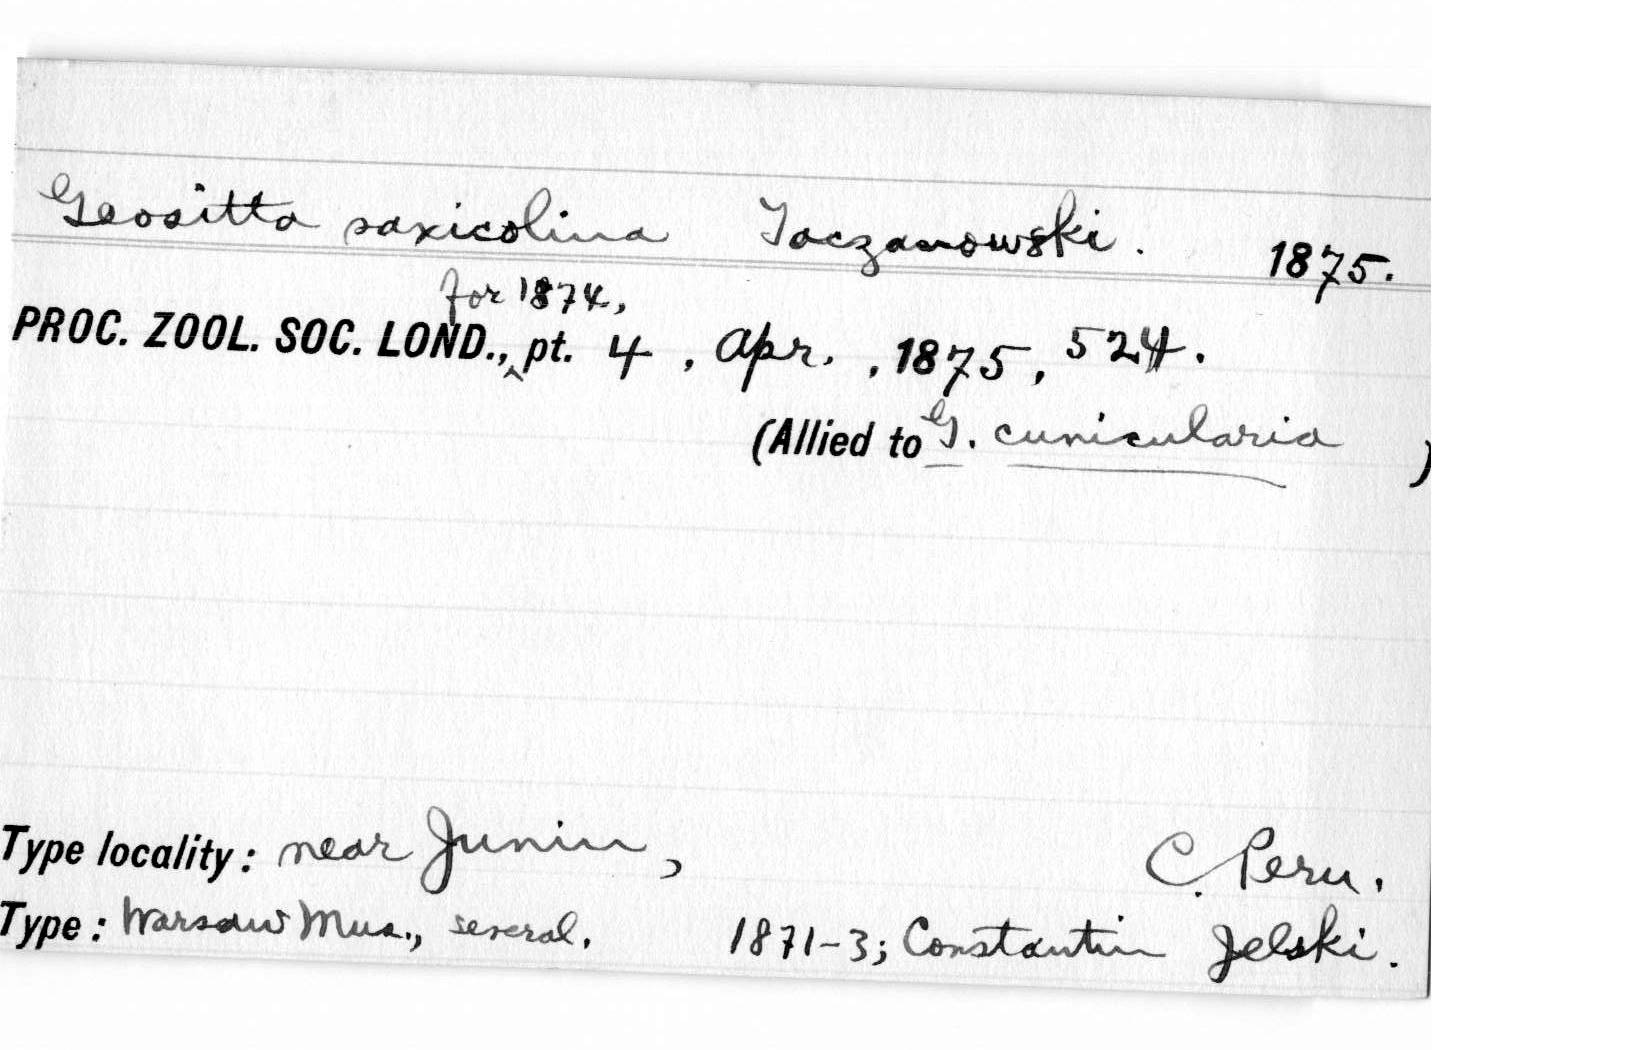 Geositta saxicolina Taczanowski. 1875.
for 1874,
PROC. ZOOL. SOC. LOND.,^ pt. 4, Apr., 1875, 524.
(Allied to G. cunicularia )
Type locality: near Junin, C. Peru.
Type: Warsaw Mus., several. 1871-3; Constantin Jelski.